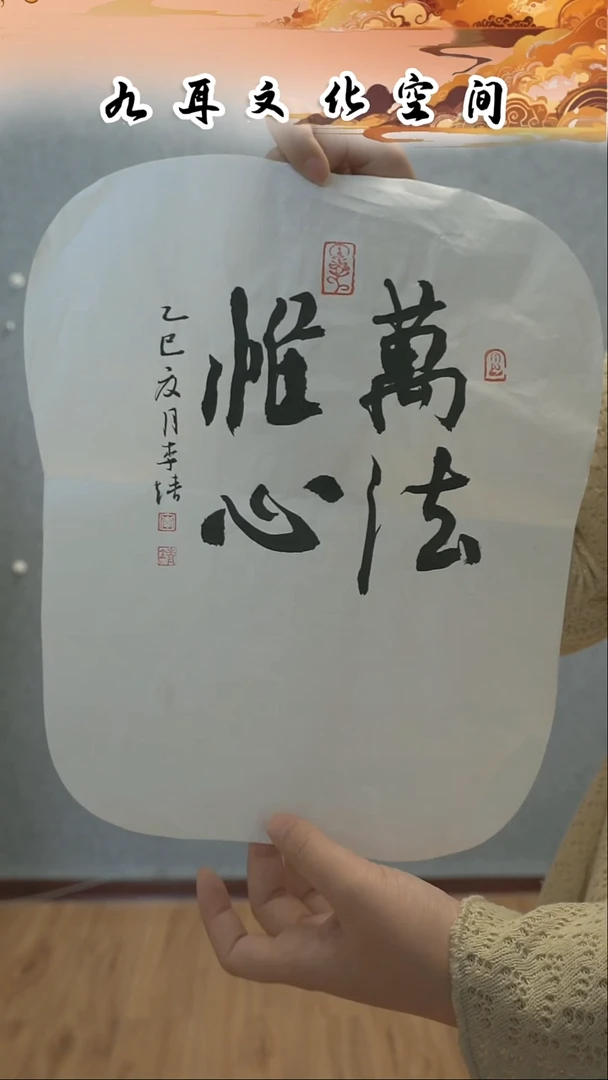 九耳文化空间
萬法
惟心
乙巳夏月李靖